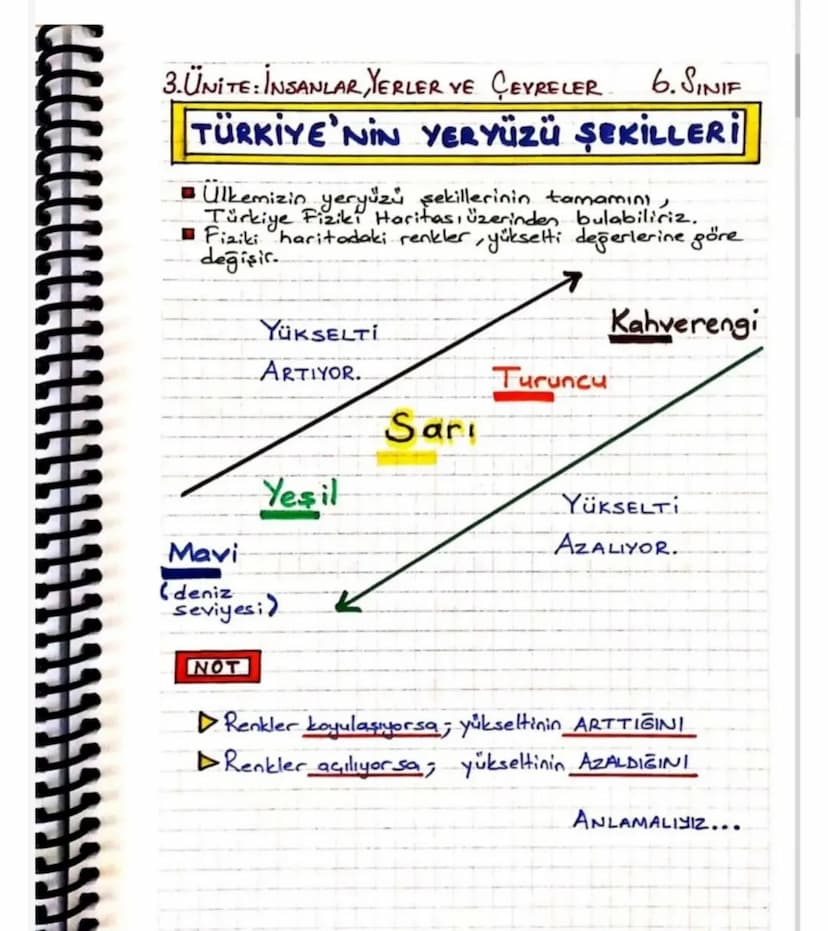 3.ÜNİTE: İNSANLAR, YERLER VE ÇEVRELER 6. SINIF
TÜRKİYE'NİN YERYÜZÜ ŞEKİLLERİ
Ülkemizin yeryüzü şekillerinin tamamını,
Türkiye Fiziki Haritası üzerinden bulabiliriz.
Fiziki haritadaki renkler, yükselti değerlerine göre
değişir.
YÜKSELTİ
ARTIYOR.
Kahverengi
Turuncu
Sarı
Yeşil
Mavi
(deniz
seviyesi)
YÜKSELTİ
AZALIYOR.
NOT
Renkler koyulaşıyorsa; yükseltinin ARTTIĞINI
Renkler açılıyorsa; yükseltinin AZALDIĞINI
ANLAMALIYIZ...